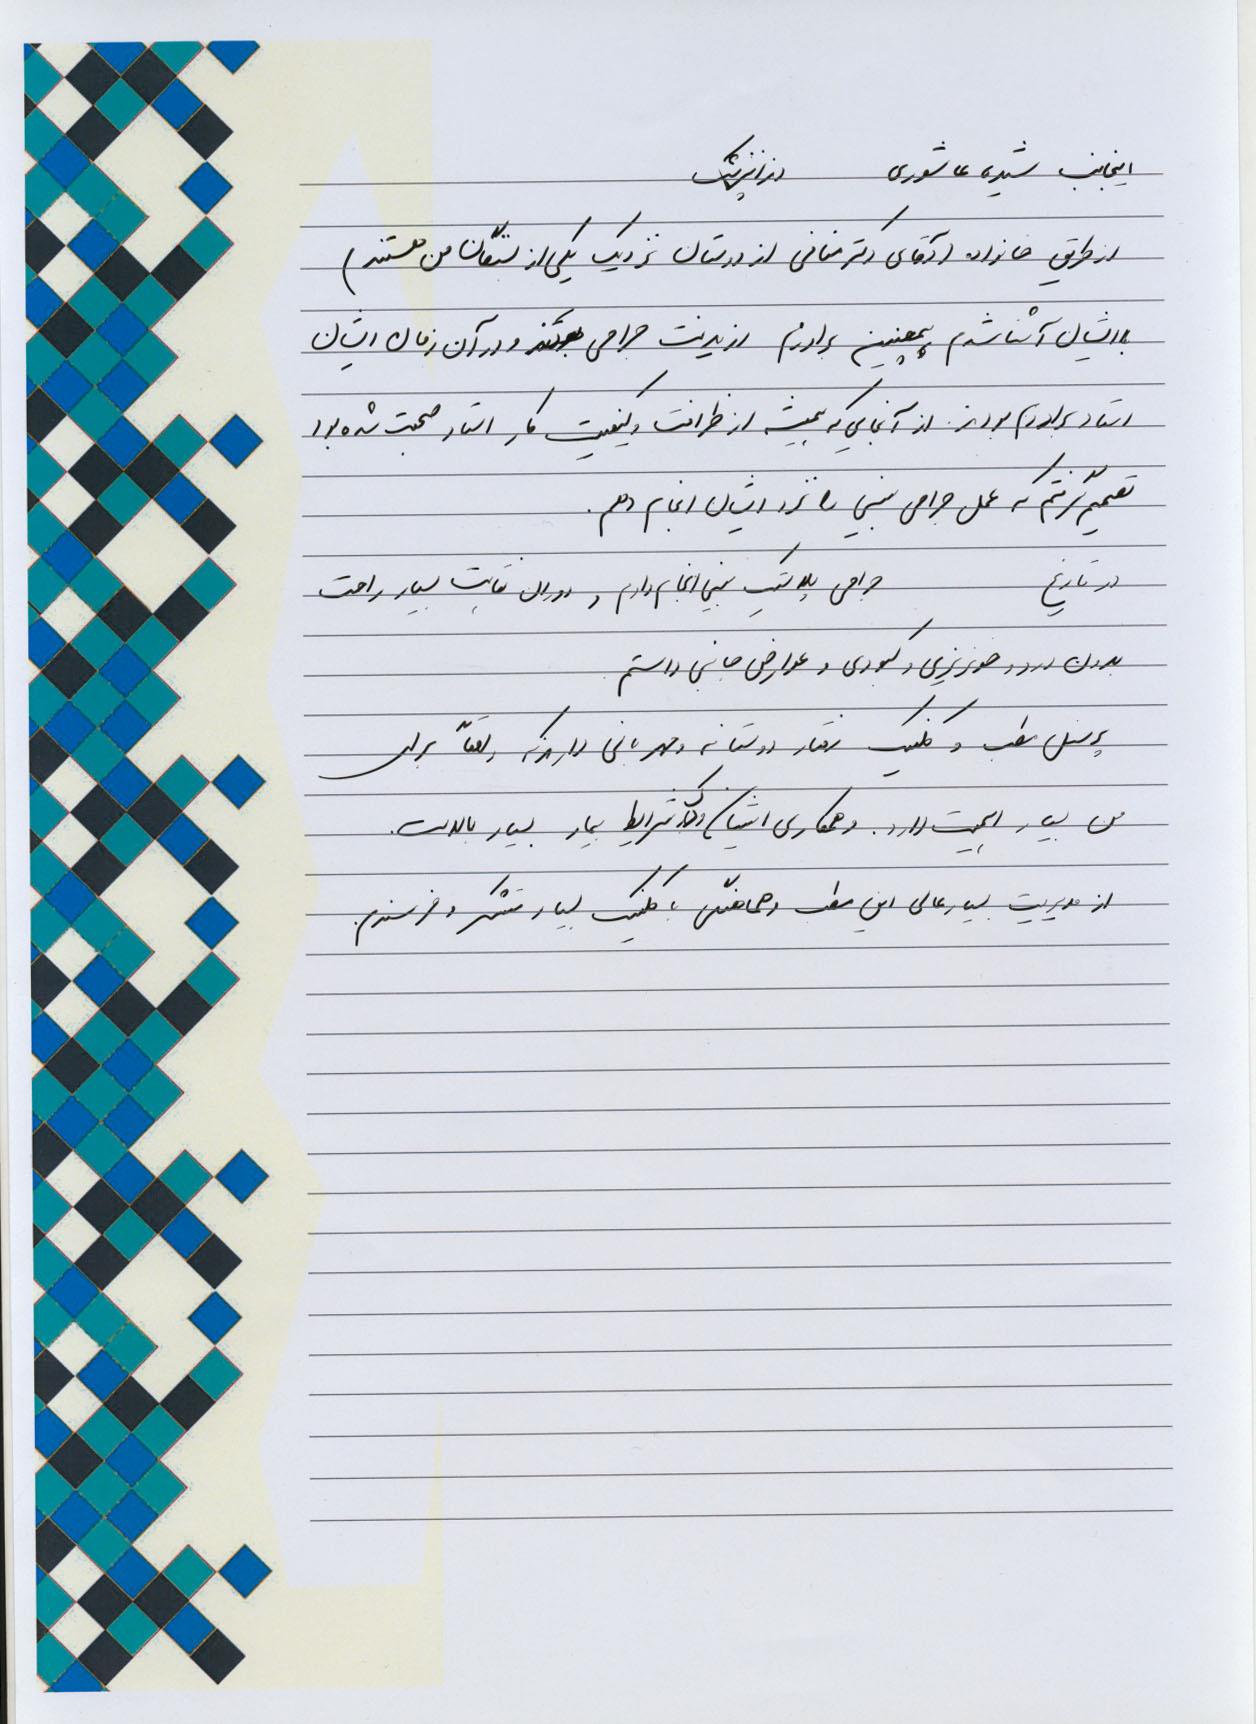 اینجانب شیده عاشوری دندانپزشک
از طریق خانواده (آقای دکتر منافی از دوستان نزدیک یکی از بستگان من هستند)
با ایشان آشنا شدم همچنین برادرم رزیدنت جراحی و در آن زمان ایشان
استاد برادرم بودند. از آنجایی که همیشه از ظرافت و کیفیت کار استاد صحبت شده بود
تصمیم گرفتم که عمل جراحی بینی را نزد ایشان انجام دهم.
در تاریخ جراحی پلاستیک بینی انجام دادم و دوران نقاهت بسیار راحت
بدون درد و خونریزی و کبودی و عوارض جانبی داشتم.
پرسنل مطب و کلینیک رفتار دوستانه و مهربانی دارند که واقعاً برای
من بسیار اهمیت دارد. و همکاری ایشان شرایط بیمار بسیار بالاست.
از مدیریت بسیار عالی این مطب و هماهنگی با کلینیک بسیار متشکر و خرسندم.